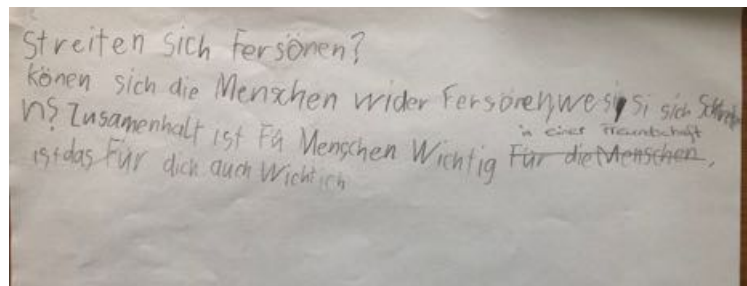 Streiten sich Fersönen?
könen sich die Menschen wider Fersören, we si si sich
n? Zusamenhalt ist Fü Menschen Wichtig Für die Menschen,
in einer Freundschaft
ist das Für dich auch Wichtich